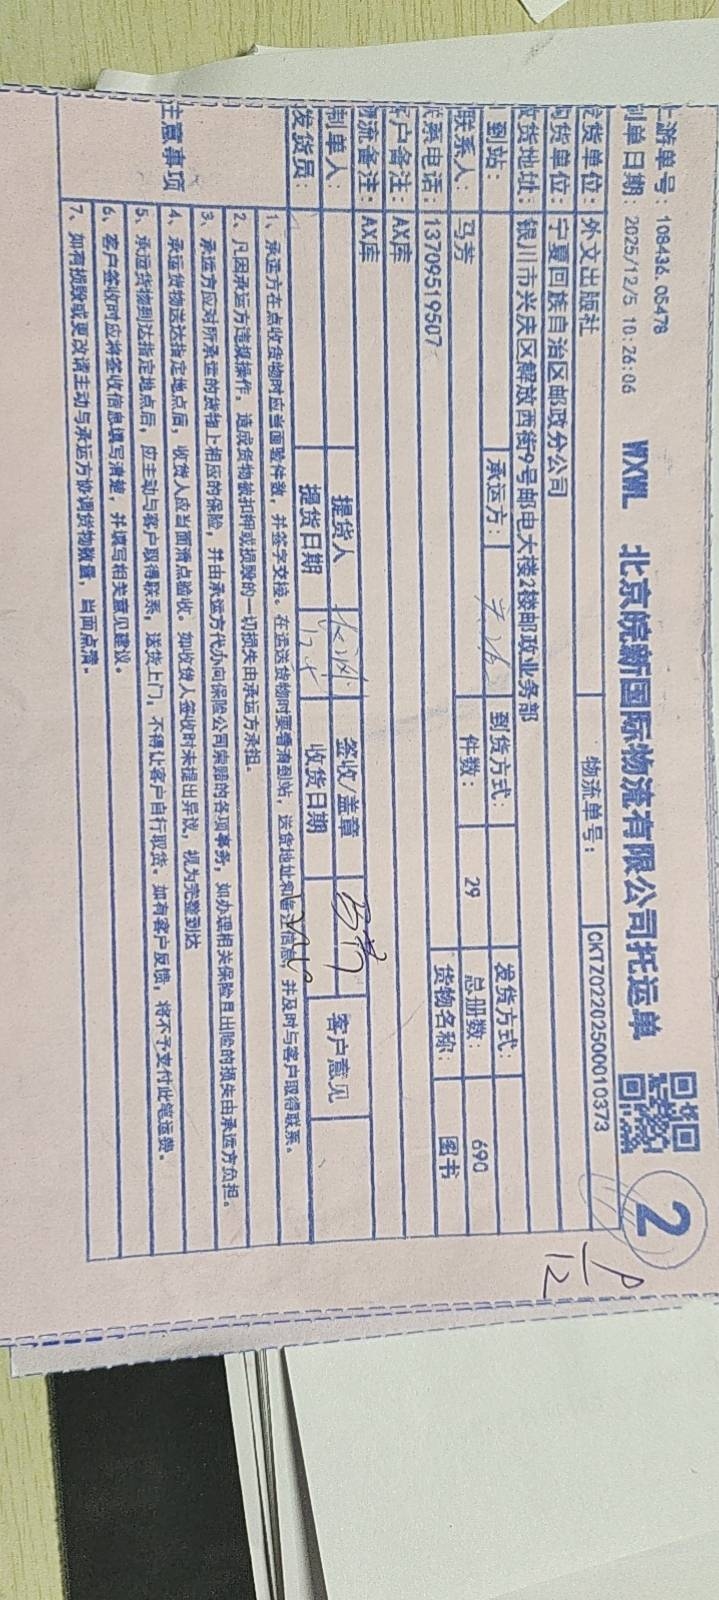 上游单号：108436.05478
制单日期：2025/12/5 10:26:06
WXWL 北京皖新国际物流有限公司托运单
2
发货单位：外文出版社 物流单号：CKTZ02202500010373
收货单位：宁夏回族自治区邮政分公司
收货地址：银川市兴庆区解放西街9号邮电大楼2楼邮政业务部
到站： 承运方： 到货方式： 发货方式：
联系人：马芳 件数：29 总册数：690
联系电话：13709519507 货物名称：图书
客户备注：AX库
物流备注：AX库
制单人： 提货人 签收/盖章 马芳 客户意见
发货员： 提货日期 收货日期
注意事项
1、承运方在点收货物时应当面验件数，并签字交接。在运送货物时要看清到站，送货地址和备注信息，并及时与客户取得联系。
2、凡因承运方违规操作，造成货物被扣押或损毁的一切损失由承运方承担。
3、承运方应对所承运的货物上相应的保险，并由承运方代办向保险公司索赔的各项事务，如办理相关保险且出险的损失由承运方负担。
4、承运货物送达指定地点后，收货人应当面清点验收。如收货人签收时未提出异议，视为完整到达
5、承运货物到达指定地点后，应主动与客户取得联系，送货上门，不得让客户自行取货。如有客户反馈，将不予支付此笔运费。
6、客户签收时应将签收信息填写清楚，并填写相关意见建议。
7、如有损毁或更改请主动与承运方协调货物数量，当面点清。